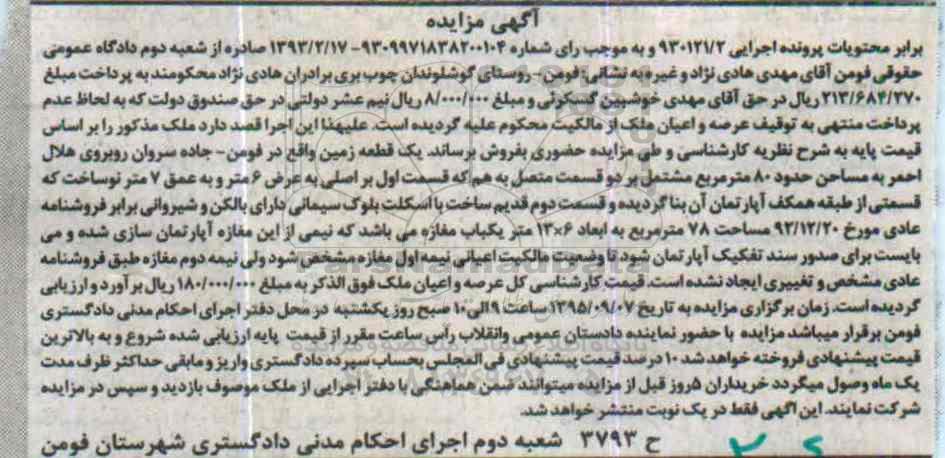 آگهی مزایده
برابر محتویات پرونده اجرایی ۹۳۰۱۲۱/۲ و به موجب رای شماره ۹۳۰۹۹۷۱۸۳۸۲۰۰۱۰۴- ۱۳۹۳/۲/۱۷ صادره از شعبه دوم دادگاه عمومی
حقوقی فومن آقای مهدی هادی نژاد و غیره به نشانی: فومن- روستای گوشلوندان چوب بری برادران هادی نژاد محکومند به پرداخت مبلغ
۲۱۳/۶۸۴/۲۷۰ ریال در حق آقای مهدی خوشبین گسکرئی و مبلغ ۸/۰۰۰/۰۰۰ ریال نیم عشر دولتی در حق صندوق دولت که به لحاظ عدم
پرداخت منتهی به توقیف عرصه و اعیان ملک از مالکیت محکوم علیه گردیده است. علیهذا این اجرا قصد دارد ملک مذکور را بر اساس
قیمت پایه به شرح نظریه کارشناسی و طی مزایده حضوری بفروش برساند. یک قطعه زمین واقع در فومن- جاده سروان روبروی هلال
احمر به مساحن حدود ۸۰ مترمربع مشتمل بر دو قسمت متصل به هم که قسمت اول بر اصلی به عرض ۶ متر و به عمق ۷ متر نوساخت که
قسمتی از طبقه همکف آپارتمان آن بنا گردیده و قسمت دوم قدیم ساخت با اسکلت بلوک سیمانی دارای بالکن و شیروانی برابر فروشنامه
عادی مورخ ۹۲/۱۲/۲۰ مساحت ۷۸ مترمربع به ابعاد ۶×۱۳ متر یکباب مغازه می باشد که نیمی از این مغازه آپارتمان سازی شده و می
بایست برای صدور سند تفکیک آپارتمان شود تا وضعیت مالکیت اعیانی نیمه اول مغازه مشخص شود ولی نیمه دوم مغازه طبق فروشنامه
عادی مشخص و تغییری ایجاد نشده است. قیمت کارشناسی کل عرصه و اعیان ملک فوق الذکر به مبلغ ۱۸۰/۰۰۰/۰۰۰ ریال برآورد و ارزیابی
گردیده است. زمان برگزاری مزایده به تاریخ ۱۳۹۵/۰۹/۰۷ ساعت ۹الی۱۰ صبح روز یکشنبه در محل دفتر اجرای احکام مدنی دادگستری
فومن برقرار میباشد مزایده با حضور نماینده دادستان عمومی وانقلاب راس ساعت مقرر از قیمت پایه ارزیابی شده شروع و به بالاترین
قیمت پیشنهادی فروخته خواهد شد ۱۰ درصد قیمت پیشنهادی فی المجلس بحساب سپرده دادگستری واریز و مابقی حداکثر ظرف مدت
یک ماه وصول میگردد خریداران ۵روز قبل از مزایده میتوانند ضمن هماهنگی با دفتر اجرایی از ملک موصوف بازدید و سپس در مزایده
شرکت نمایند. این آگهی فقط در یک نوبت منتشر خواهد شد.
ح ۳۷۹۳ شعبه دوم اجرای احکام مدنی دادگستری شهرستان فومن
ParsNamadData